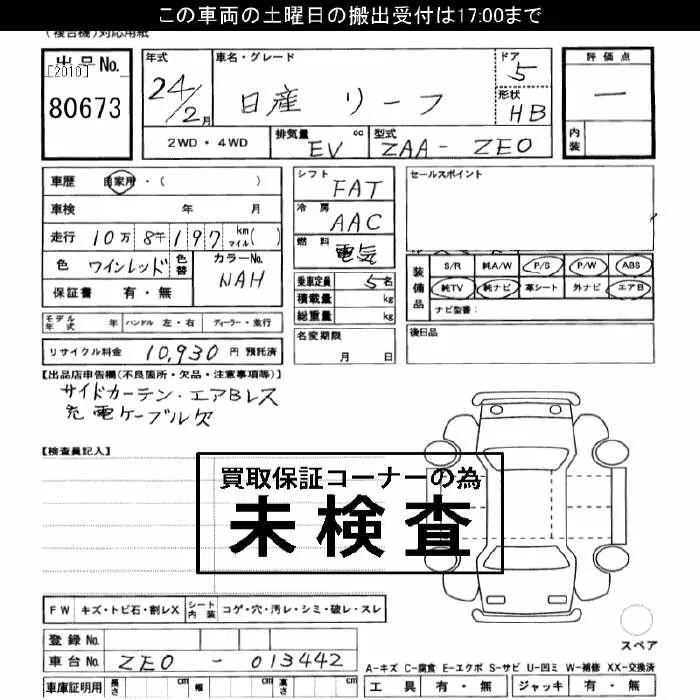 この車両の土曜日の搬出受付は17:00まで
(複合機)対応用紙
出品No.
[2010]
80673
年式
24/2月
車名・グレード
日産 リーフ
ドア
5
形状
HB
評価点
―
内装
2WD・4WD
排気量 cc
EV
型式
ZAA-ZE0
車歴 自家用・( )
車検 年 月
走行 10万8千197 km マイル( )
色 ワインレッド 色替 カラーNo.
NAH
保証書 有・無
シフト
FAT
冷房
AAC
燃料
電気
乗車定員 5名
積載量 kg
総重量 kg
セールスポイント
装備品
S/R 純A/W P/S P/W ABS
純TV 純ナビ 革シート 外ナビ エアB
ナビ型番:
モデル年式 年 ハンドル 左・右 ディーラー・並行
名変期限
月 日
後日品
リサイクル料金 10,930 円 預託済
【出品店申告欄(不良箇所・欠品・注意事項等)】
サイドカーテン・エアBレス
充電ケーブル欠
【検査員記入】
買取保証コーナーの為
未検査
FW キズ・トビ石・割レX シート内装 コゲ・穴・汚レ・シミ・破レ・スレ
スペア
登録No.
車台No. ZE0-013442
A-キズ C-腐食 E-エクボ S-サビ U-凹ミ W-補修 XX-交換済
車庫証明用 長さ cm 幅 cm 高さ cm
工具 有・無 ジャッキ 有・無